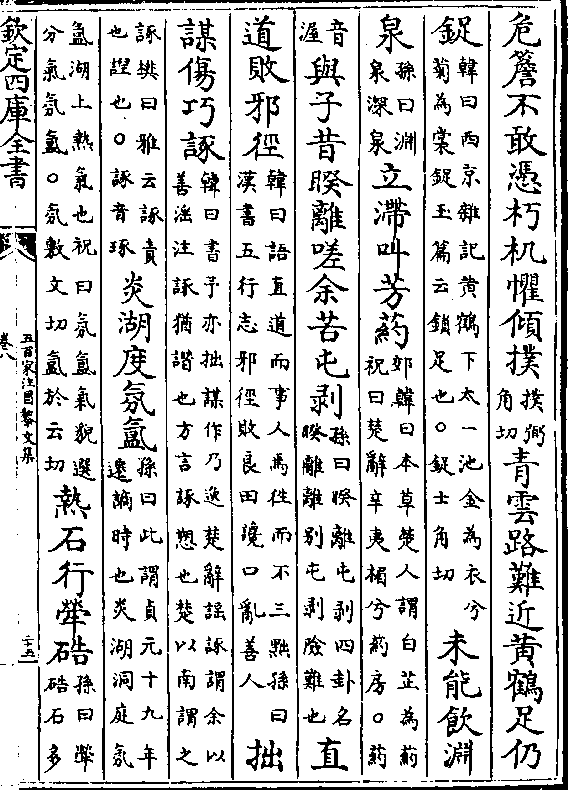 危簷不敢憑朽机懼傾撲撲弼角切青雲路難近黄鶴足仍
鋜韓曰西京雜記黄鶴下太一池金為衣兮菊為裳鋜玉篇云鎖足也○鋜士角切未能飲淵
泉孫曰淵泉深泉立滯叫芳葯郊韓曰本草楚人謂白芷為葯祝曰楚辭辛夷楣兮葯房○葯
音渥與子昔睽離嗟余苦屯剥孫曰睽離屯剥四卦名睽離離别屯剥險難也直
道敗邪徑韓曰語直道而事人焉往而不三黜孫曰漢書五行志邪徑敗良田讒口亂善人拙
謀傷巧諑韓曰書予亦拙謀作乃逸楚辭謡諑謂余以善淫注諑猶譖也方言諑愬也楚以南謂之
諑樊曰雅云諑責也諲也○諑音琢炎湖度氛氲孫曰此謂貞元十九年遷謫時也炎湖洞庭氛
氲湖上熱氣也祝曰氛氲氣貌選分氣氛氲○氛敷文切氲於云切熱石行犖硞孫曰犖硞石多
欽定四庫全書
五百家注昌黎文集
卷八
二十五